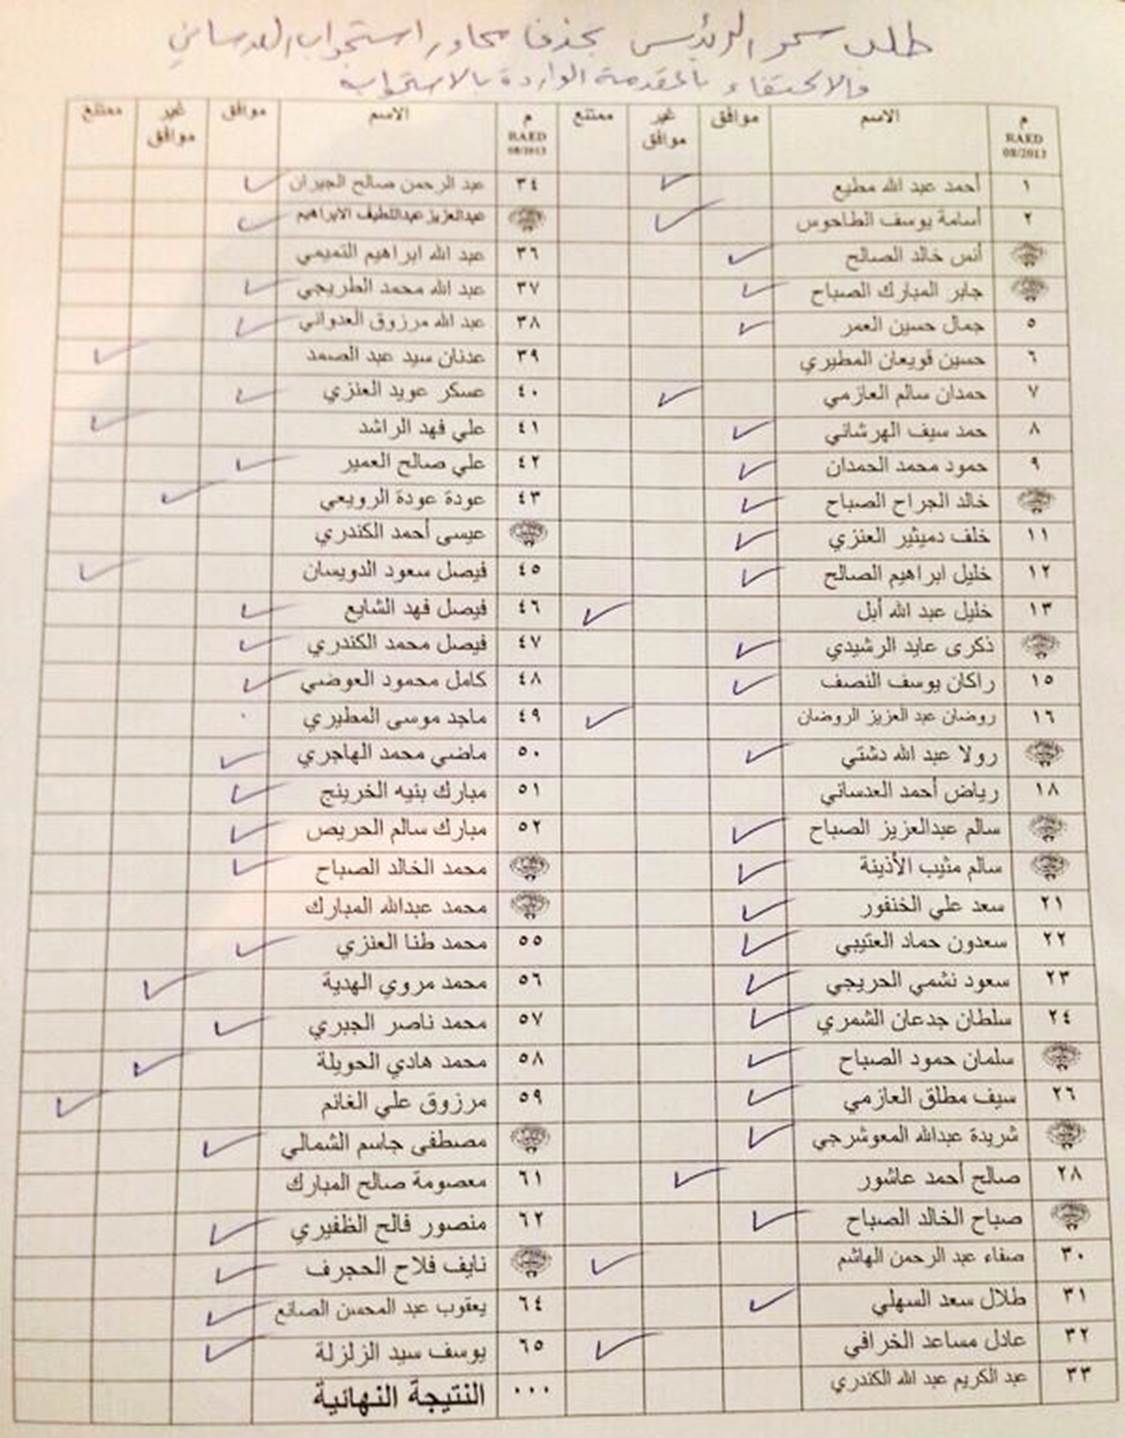 طلب سمو الرئيس بحذف محاور استجواب العدساني
والاكتفاء بالمقدمة الواردة بالاستجواب
م RAED 08/2013 الاسم موافق غير موافق ممتنع
١ أحمد عبد الله مطيع
٢ أسامة يوسف الطاحوس
أنس خالد الصالح
جابر المبارك الصباح
٥ جمال حسين العمر
٦ حسين قويعان المطيري
٧ حمدان سالم العازمي
٨ حمد سيف الهرشاني
٩ حمود محمد الحمدان
خالد الجراح الصباح
١١ خلف دميثير العنزي
١٢ خليل ابراهيم الصالح
١٣ خليل عبد الله أبل
ذكرى عايد الرشيدي
١٥ راكان يوسف النصف
١٦ روضان عبد العزيز الروضان
رولا عبد الله دشتي
١٨ رياض أحمد العدساني
سالم عبدالعزيز الصباح
سالم مثيب الأذينة
٢١ سعد علي الخنفور
٢٢ سعدون حماد العتيبي
٢٣ سعود نشمي الحريجي
٢٤ سلطان جدعان الشمري
سلمان حمود الصباح
٢٦ سيف مطلق العازمي
شريدة عبدالله المعوشرجي
٢٨ صالح أحمد عاشور
صباح الخالد الصباح
٣٠ صفاء عبد الرحمن الهاشم
٣١ طلال سعد السهلي
٣٢ عادل مساعد الخرافي
٣٣ عبد الكريم عبد الله الكندري
م RAED 08/2013 الاسم موافق غير موافق ممتنع
٣٤ عبد الرحمن صالح الجيران
عبدالعزيز عبداللطيف الابراهيم
٣٦ عبد الله ابراهيم التميمي
٣٧ عبد الله محمد الطريجي
٣٨ عبد الله مرزوق العدواني
٣٩ عدنان سيد عبد الصمد
٤٠ عسكر عويد العنزي
٤١ علي فهد الراشد
٤٢ علي صالح العمير
٤٣ عودة عودة الرويعي
عيسى أحمد الكندري
٤٥ فيصل سعود الدويسان
٤٦ فيصل فهد الشايع
٤٧ فيصل محمد الكندري
٤٨ كامل محمود العوضي
٤٩ ماجد موسى المطيري
٥٠ ماضي محمد الهاجري
٥١ مبارك بنيه الخرينج
٥٢ مبارك سالم الحريص
محمد الخالد الصباح
محمد عبدالله المبارك
٥٥ محمد طنا العنزي
٥٦ محمد مروي الهدية
٥٧ محمد ناصر الجبري
٥٨ محمد هادي الحويلة
٥٩ مرزوق علي الغانم
مصطفى جاسم الشمالي
٦١ معصومة صالح المبارك
٦٢ منصور فالح الظفيري
نايف فلاح الحجرف
٦٤ يعقوب عبد المحسن الصانع
٦٥ يوسف سيد الزلزلة
٠٠٠ النتيجة النهائية